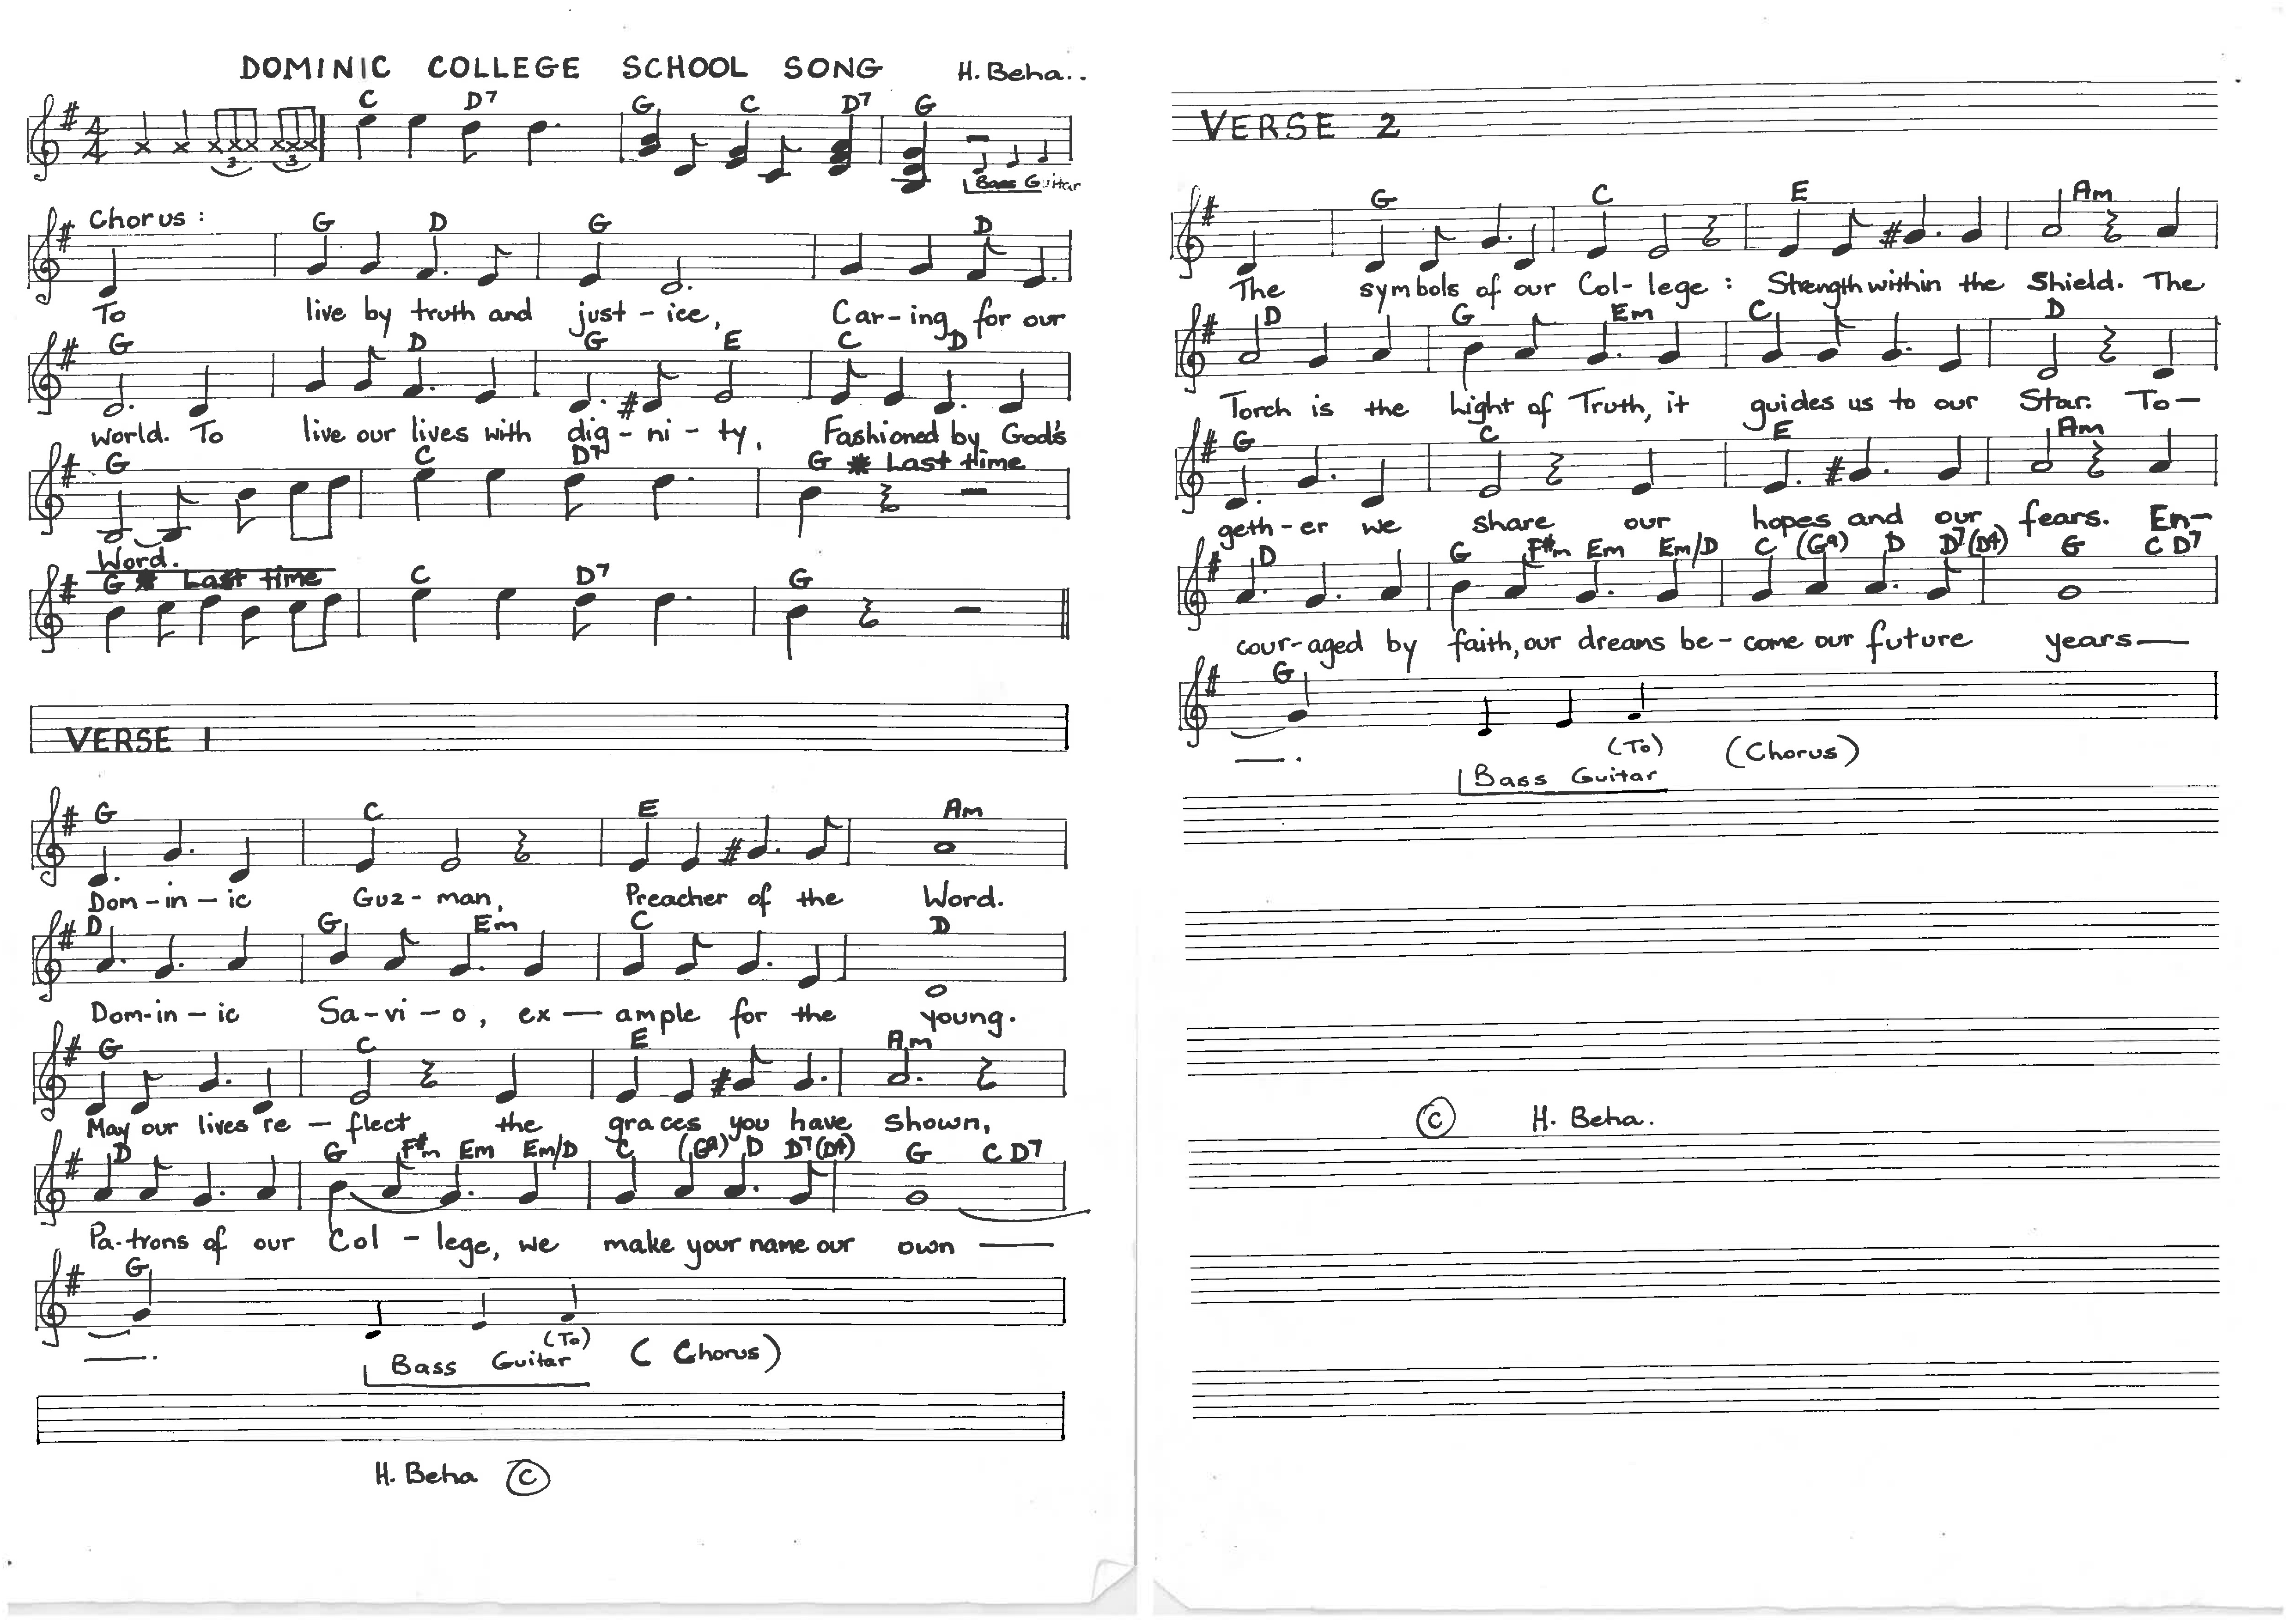 DOMINIC COLLEGE SCHOOL SONG H. Beha..
C D7 G C D7 G
4 4 3 3 Bass Guitar
Chorus :
G D G D
To live by truth and just - ice, Car - ing for our
G D G E C D
world. To live our lives with dig - ni - ty, Fashioned by God's
G C D7 G * Last time
Word.
G * Last time C D7 G
VERSE 1
G C E Am
Dom - in - ic Guz - man, Preacher of the Word.
D G Em C D
Dom - in - ic Sa - vi - o, ex — ample for the young.
G C E Am
May our lives re - flect the graces you have shown,
D G F#m Em Em/D C (G9) D D7(D4) G C D7
Pa - trons of our Col - lege, we make your name our own —
G
— .
(To) (Chorus)
Bass Guitar
H. Beha ©
VERSE 2
G C E Am
The symbols of our Col - lege : Strength within the Shield. The
D G Em C D
Torch is the Light of Truth, it guides us to our Star. To -
G C E Am
geth - er we share our hopes and our fears. En -
D G F#m Em Em/D C (G9) D D7(D4) G C D7
cour - aged by faith, our dreams be - come our future years —
G
— .
(To) (Chorus)
Bass Guitar
© H. Beha.